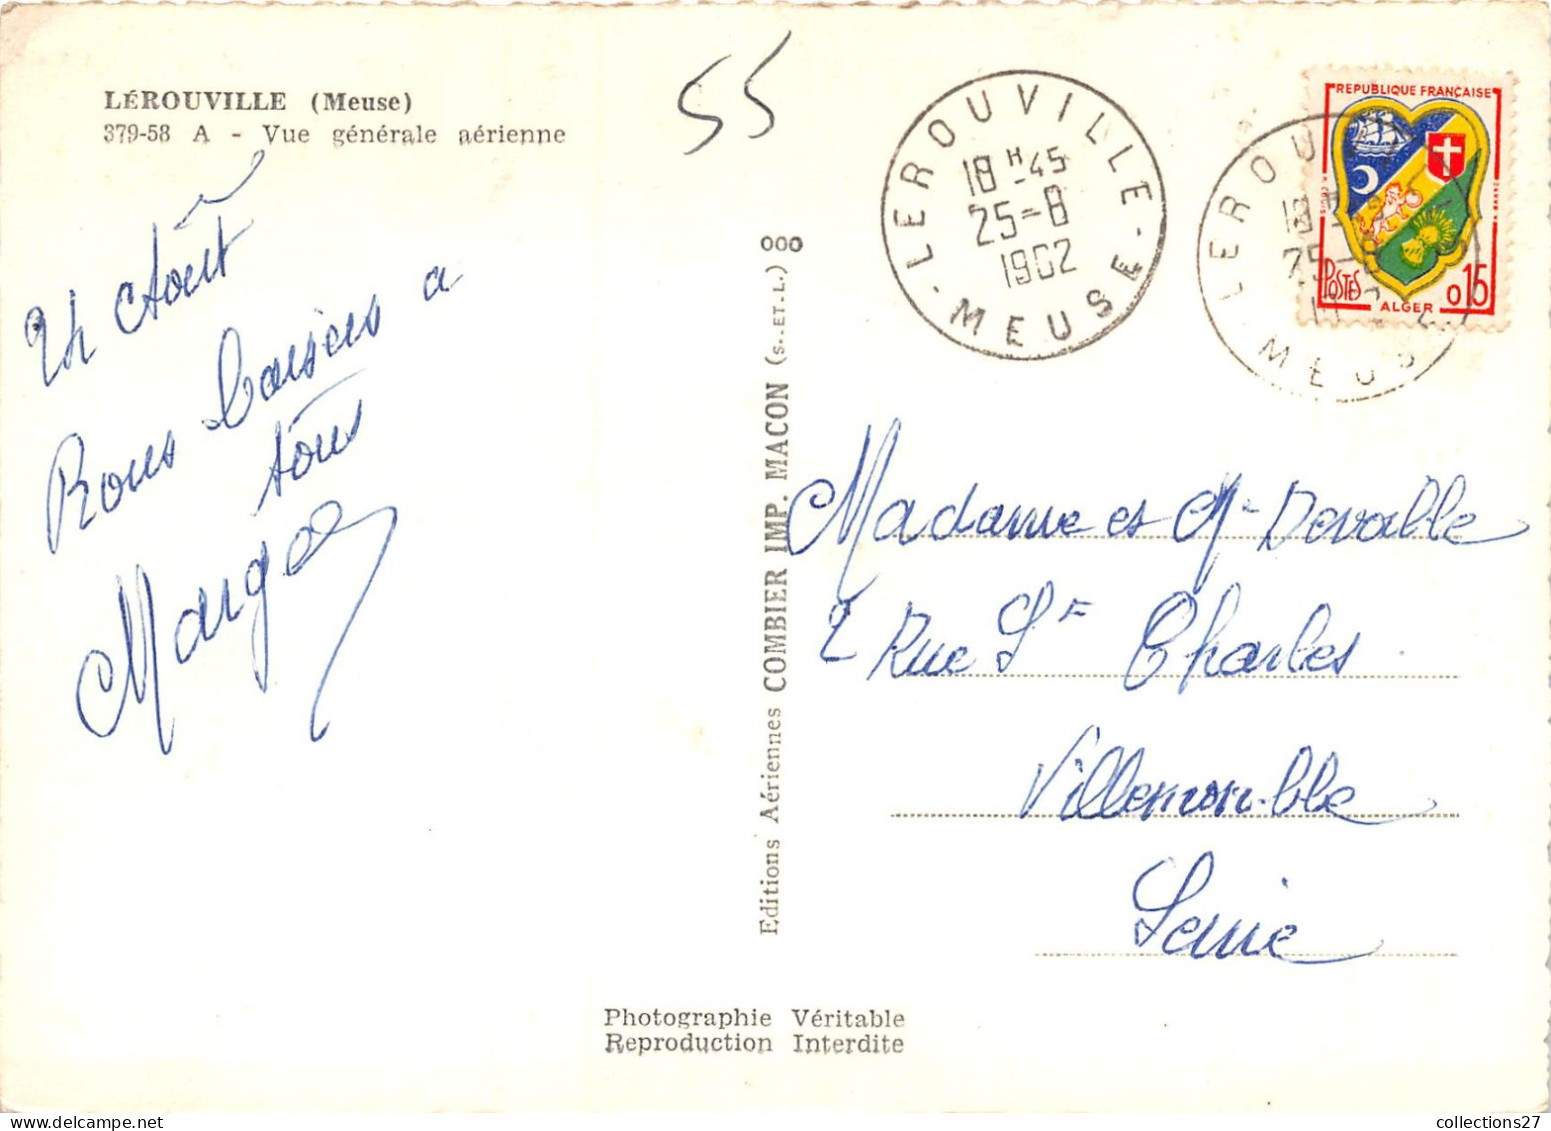 LÉROUVILLE (Meuse)
379-58 A - Vue générale aérienne
24 Août
Bons baisers a
tous
Margot
55
000
Editions Aériennes COMBIER IMP. MACON (S.-ET-L.)
LEROUVILLE
18 H -45
25-8
1962
- MEUSE -
REPUBLIQUE FRANÇAISE
POSTES
ALGER
0,15
LEROU
MEUS
Madame et Mr Devalle
2 Rue St Charles
Villemomble
Seine
Photographie Véritable
Reproduction Interdite
collections27